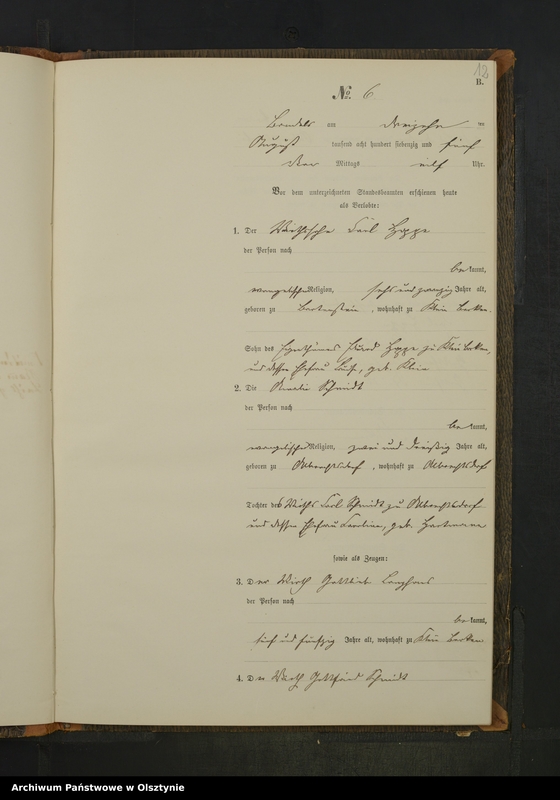 12
B.
No. 6
am dreizehn ten
August tausend acht hundert siebenzig und fünf
Mittags elf Uhr.
Vor dem unterzeichneten Standesbeamten erschienen heute
als Verlobte:
1. Der Carl Hoppe
der Person nach
bekannt,
evangelischer Religion, sechs und zwanzig Jahre alt,
geboren zu Bartenstein, wohnhaft zu Klein
Sohn des Hoppe zu Klein
und dessen Ehefrau geb. Klein
2. Die Schmidt
der Person nach
bekannt,
evangelischer Religion, zwei und dreißig Jahre alt,
geboren zu Albrechtsdorf, wohnhaft zu Albrechtsdorf
Tochter des Wirths Carl Schmidt zu Albrechtsdorf
und dessen Ehefrau Caroline, geb. Hartmann
sowie als Zeugen:
3. Der Wirth Gottlieb
der Person nach
bekannt,
fünf und fünfzig Jahre alt, wohnhaft zu Klein
4. Der Wirth Gottfried Schmidt
Archiwum Państwowe w Olsztynie